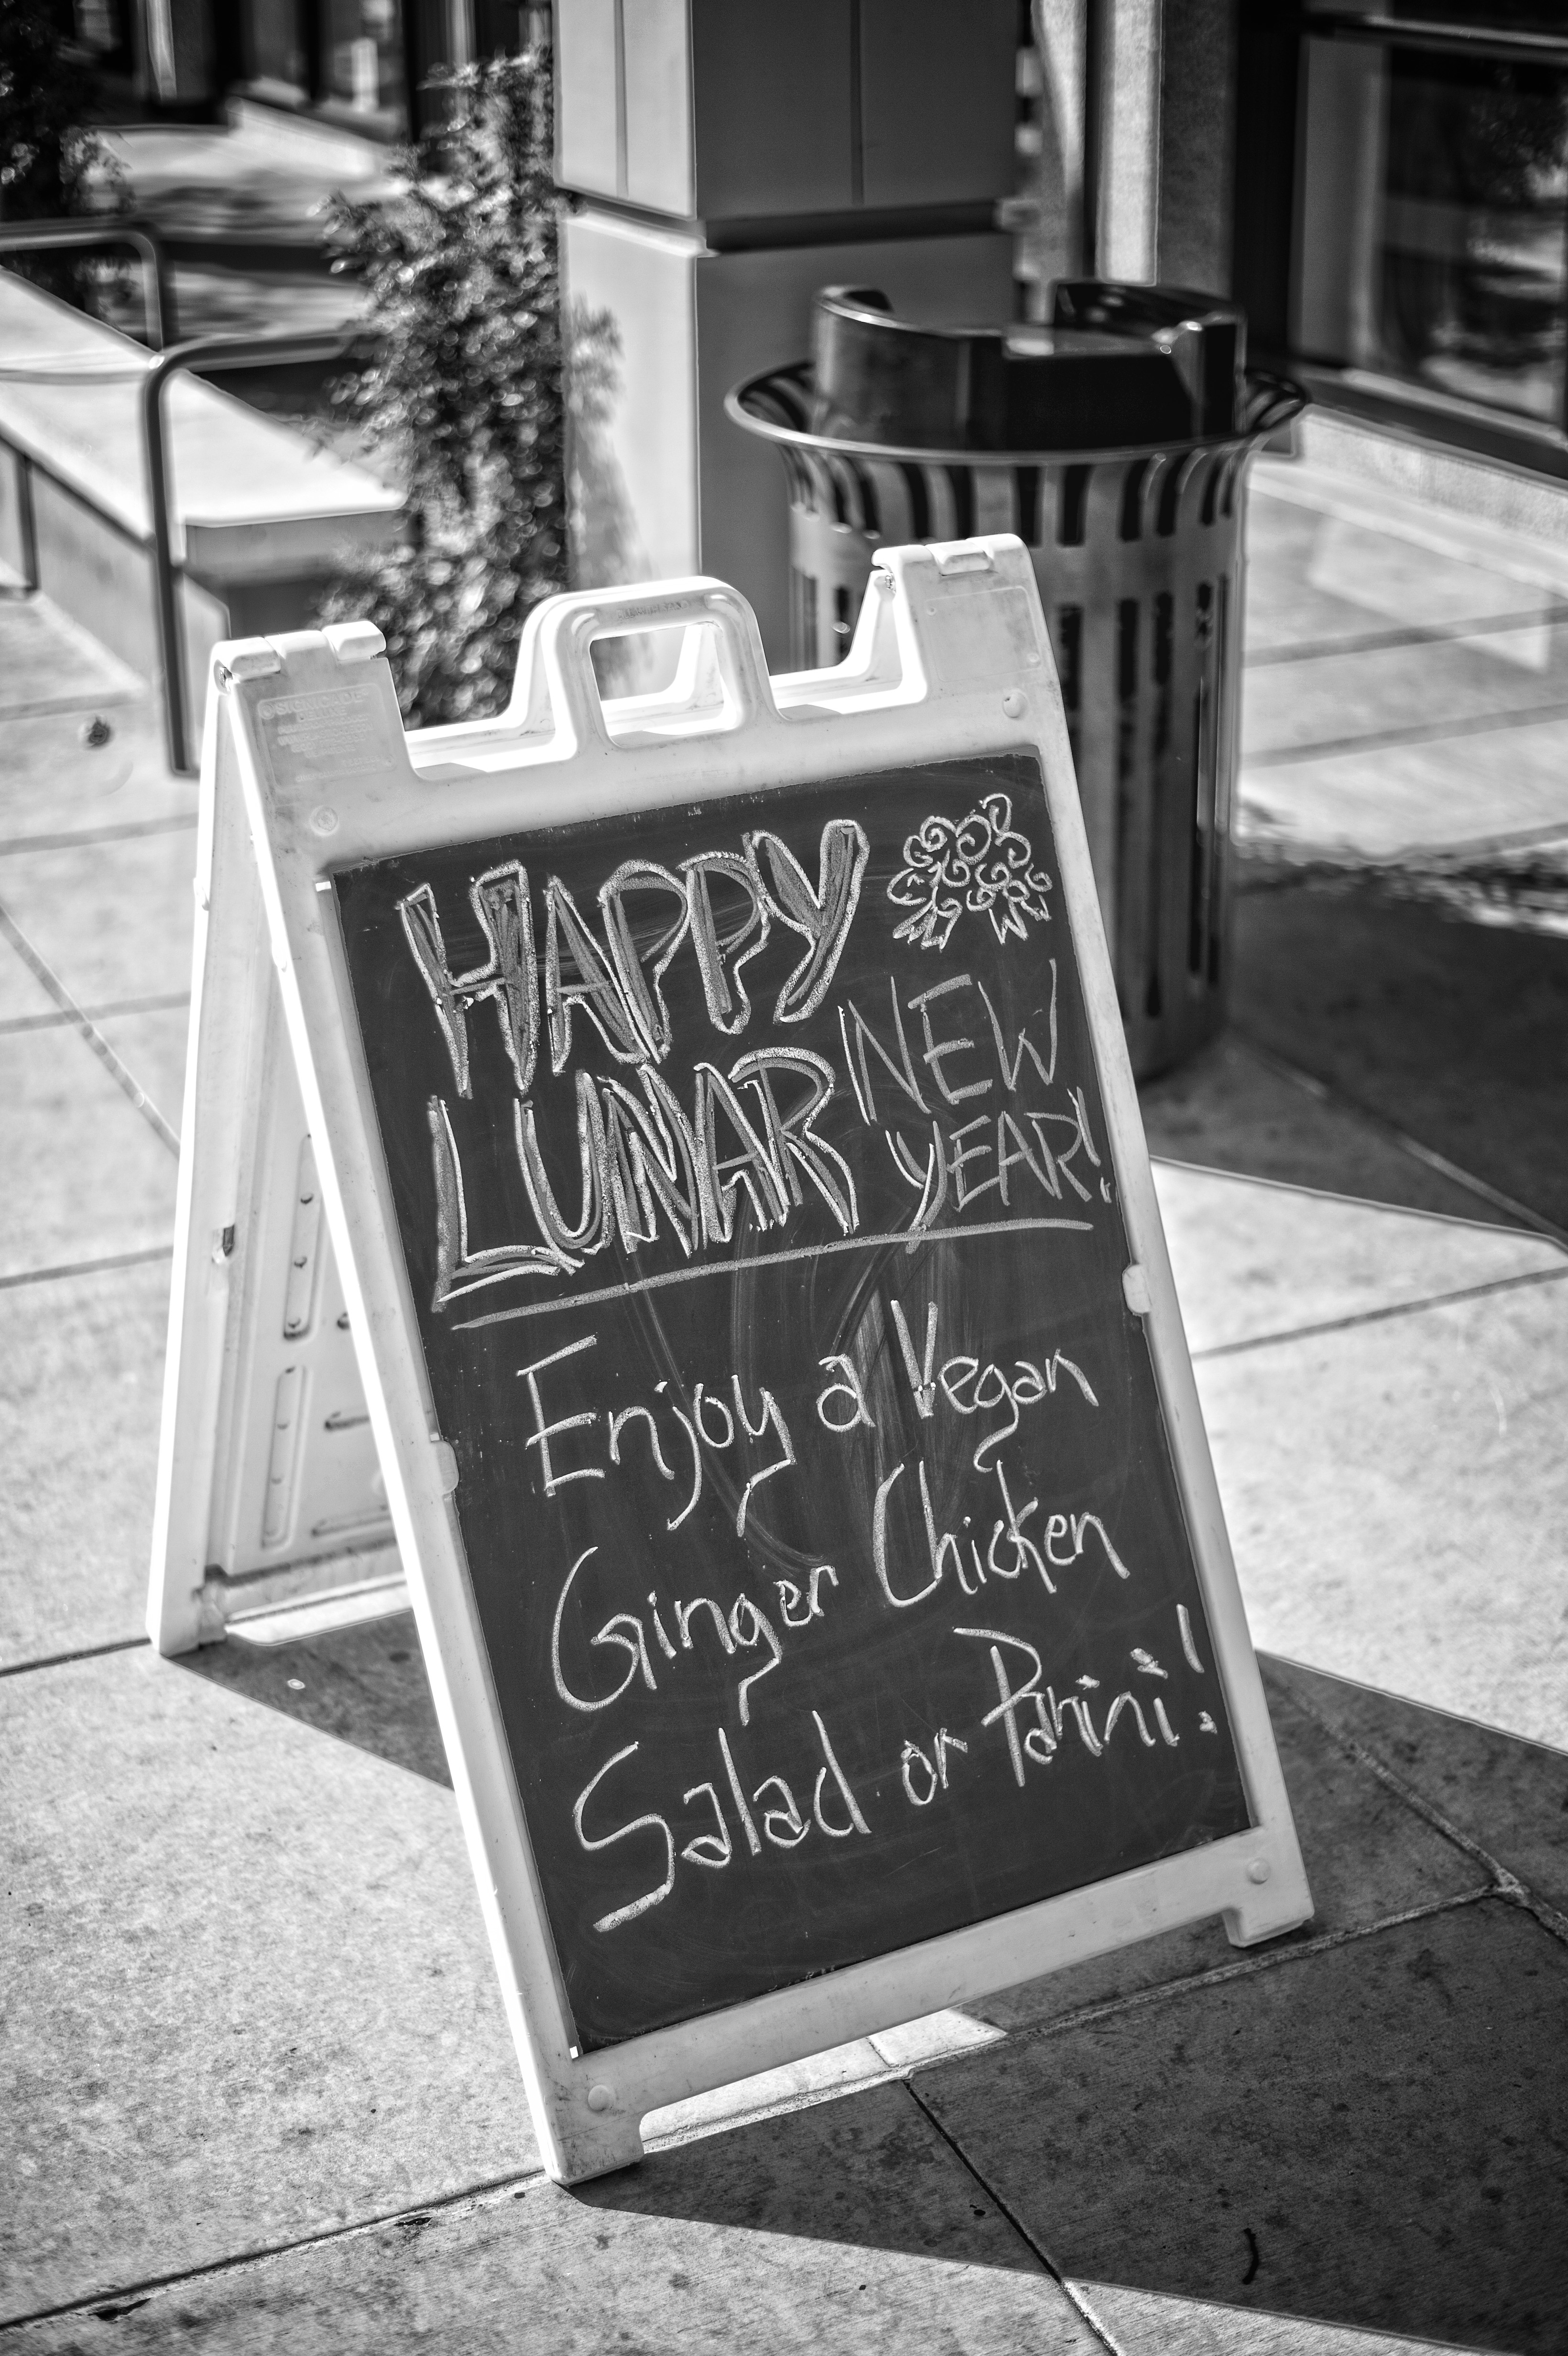 HAPPY
LUNAR NEW
YEAR!
Enjoy a Vegan
Ginger Chicken
Salad or Panini!